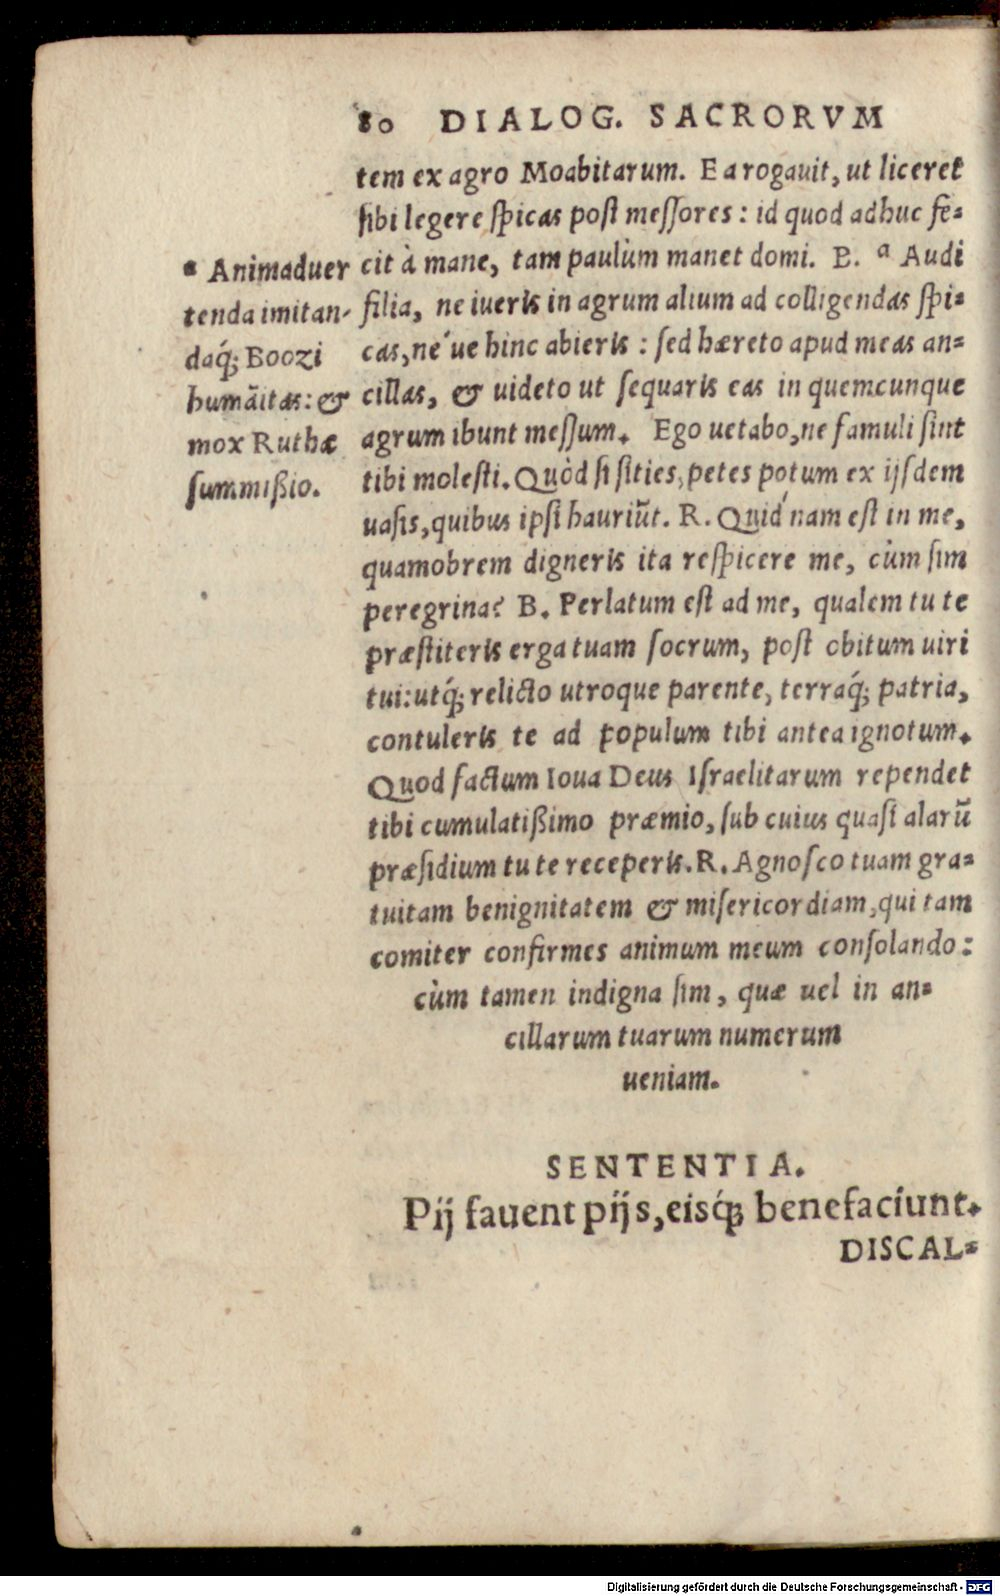 80 DIALOG. SACRORVM
tem ex agro Moabitarum. Ea rogauit, ut liceret
ſibi legere ſpicas poſt meſſores: id quod adhuc fe=
cit à mane, tam paulùm manet domi. B. ª Audi
filia, ne iueris in agrum alium ad colligendas ſpi=
cas, né ue hinc abieris: ſed hæreto apud meas an=
cillas, & uideto ut ſequaris eas in quemcunque
agrum ibunt meſſum. Ego uetabo, ne famuli ſint
tibi moleſti. Quòd ſi ſities, petes potum ex ijſdem
uaſis, quibus ipſi hauriũt. R. Quid́nam eſt in me,
quamobrem digneris ita reſpicere me, cùm ſim
peregrina? B. Perlatum eſt ad me, qualem tu te
præſtiteris erga tuam ſocrum, poſt obitum uiri
tui: utq́; relicto utroque parente, terraq́; patria,
contuleris te ad populum tibi antea ignotum.
Quod factum Ioua Deus Iſraelitarum rependet
tibi cumulatißimo præmio, ſub cuius quaſi alarũ
præſidium tu te receperis. R. Agnoſco tuam gra=
tuitam benignitatem & miſericordiam, qui tam
comiter confirmes animum meum conſolando:
cùm tamen indigna ſim, quæ uel in an=
cillarum tuarum numerum
ueniam.
ª Animaduer
tenda imitan-
daq́; Boozi
humãitas: &
mox Ruthæ
ſummißio.
SENTENTIA.
Pij fauent pijs, eisq́; benefaciunt.
DISCAL=
Digitalisierung gefördert durch die Deutsche Forschungsgemeinschaft - DFG